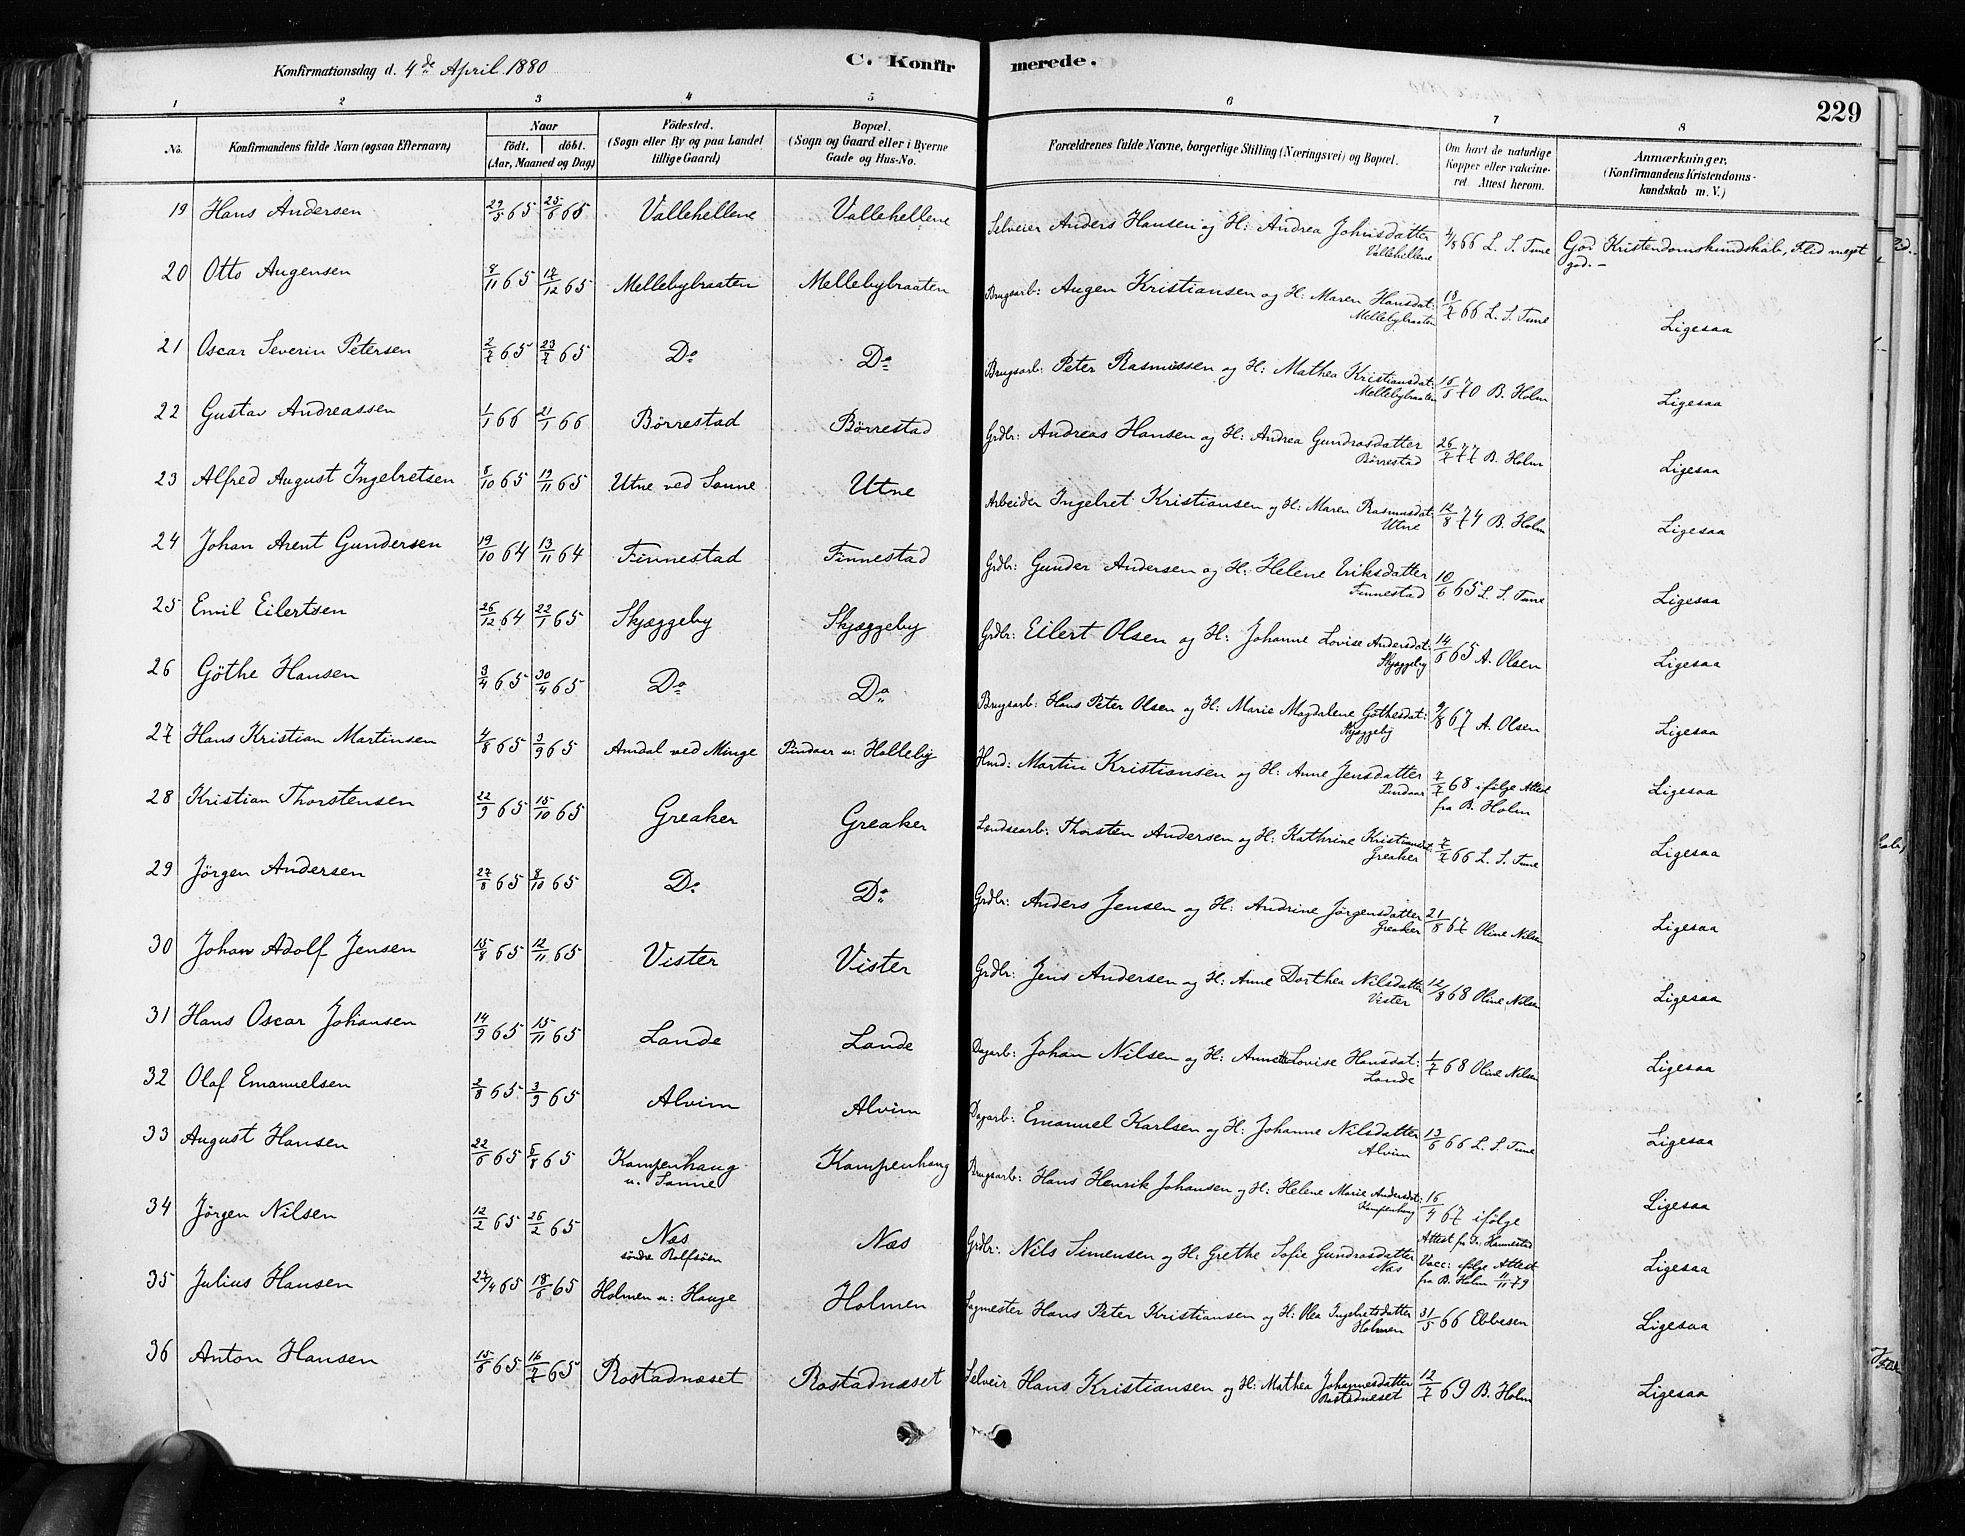 Konfirmationsdag d. 4de April 1880
C. Konfirmerede.
229
1 2 3 4 5 6 7 8
No.
Konfirmandens fulde Navn (ogsaa Efternavn)
Naar
födt. döbt.
(Aar, Maaned og Dag)
Födested.
(Sogn eller By og paa Landet
tillige Gaard)
Bopæl.
(Sogn og Gaard eller i Byerne
Gade og Hus-No.
Forældrenes fulde Navne, borgerlige Stilling (Næringsvei) og Bopæl.
Om havt de naturlige
Kopper eller vakcine-
ret. Attest herom.
Anmærkninger,
(Konfirmandens Kristendoms-
kundskab m. V.)
19 Hans Andersen 29/5 65 25/6 65 Vallehellene Vallehellene Selveier Anders Hansen og H: Andrea Johnsdatter Vallehellene 4/8 66 L. S. Tune God Kristendomskundskab, Flid meget god. -
20 Otto Augensen 8/11 65 17/12 65 Mellebybraaten Mellebybraaten Brugsarb: Augen Kristiansen og H: Maren Hansdat: Mellebybraaten 18/7 66 L. S. Tune Ligesaa
21 Oscar Severin Petersen 2/7 65 23/7 65 Do Do Brugsarb: Peter Rasmussen og H: Mathea Kristiansdat: Mellebybraaten 16/8 70 B. Holm Ligesaa
22 Gustav Andreassen 1/1 66 21/1 66 Börrestad Börrestad Grdbr: Andreas Hansen og H: Andrea Gundrosdatter Börrestad 26/7 77 B. Holm Ligesaa
23 Alfred August Ingebretsen 8/10 65 19/11 65 Utne ved Sanne Utne Arbeider Ingebret Kristiansen og H: Maren Rasmusdat: Utne 12/8 74 B. Holm Ligesaa
24 Johan Arent Gundersen 19/10 64 13/11 64 Finnestad Finnestad Grdbr: Gunder Andersen og H: Helene Eriksdatter Finnestad 10/6 65 L. S. Tune Ligesaa
25 Emil Eilertsen 26/12 64 22/1 65 Skjæggeby Skjæggeby Grdbr: Eilert Olsen og H: Johanne Lovise Andersdat: Skjæggeby 14/6 65 A. Olsen Ligesaa
26 Göthe Hansen 3/4 65 30/4 65 Do Do Brugsarb: Hans Peter Olsen og H: Marie Magdalene Göthesdat: Skjæggeby 9/8 67 A. Olsen Ligesaa
27 Hans Kristian Martinsen 4/8 65 3/9 65 Amdal ved Minge Pindaar u: Holleby Hmd: Martin Kristiansen og H: Anne Jensdatter Pindaar 7/7 68 ifölge Attest fra B. Holm Ligesaa
28 Kristian Thorstensen 22/9 65 15/10 65 Greaker Greaker Landsearb: Thorsten Andersen og H: Kathrine Kristiansdt: Greaker 7/7 66 L. S. Tune Ligesaa
29 Jörgen Andersen 27/8 65 8/10 65 Do Do Grdbr: Anders Jensen og H: Andrine Jörgensdatter Greaker 21/8 67 Oline Nilsen Ligesaa
30 Johan Adolf Jensen 15/8 65 12/11 65 Vister Vister Grdbr: Jens Andersen og H: Anne Dorthea Nilsdatter Vister 12/8 68 Oline Nilsen Ligesaa
31 Hans Oscar Johansen 14/9 65 15/11 65 Lande Lande Dagarb: Johan Nilsen og H: Annette Lovise Hansdat: Lande 1/7 68 Oline Nilsen Ligesaa
32 Olaf Emanuelsen 2/8 65 3/9 65 Alvim Alvim Dagarb: Emanuel Karlsen og H: Johanne Nilsdatter Alvim 13/6 66 L. S. Tune Ligesaa
33 August Hansen 22/6 65 5/8 65 Kampenhaug u. Sanne Kampenhaug Brugsarb: Hans Henrik Johansen og H: Helene Marie Andersdat: Kampenhaug 16/4 67 ifölge Attest fr Jr: Hannestad Ligesaa
34 Jörgen Nilsen 12/2 65 26/2 65 Næs söndre Rolfsöen Næs Grdbr: Nils Simensen og H: Grethe Sofie Gundrosdatter Næs Vacc: ifölge Attest fra B. Holm 4/11 79 Ligesaa
35 Julius Hansen 27/4 65 18/6 65 Holmen u: Hauge Holmen Sagmester Hans Peter Kristiansen og H: Olea Ingebretsdatter Holmen 31/5 66 Ebbesen Ligesaa
36 Anton Hansen 15/6 65 16/7 65 Rostadnæset Rostadnæset Selveir Hans Kristiansen og H: Mathea Johannesdatter Rostadnæset 12/7 69 B. Holm Ligesaa